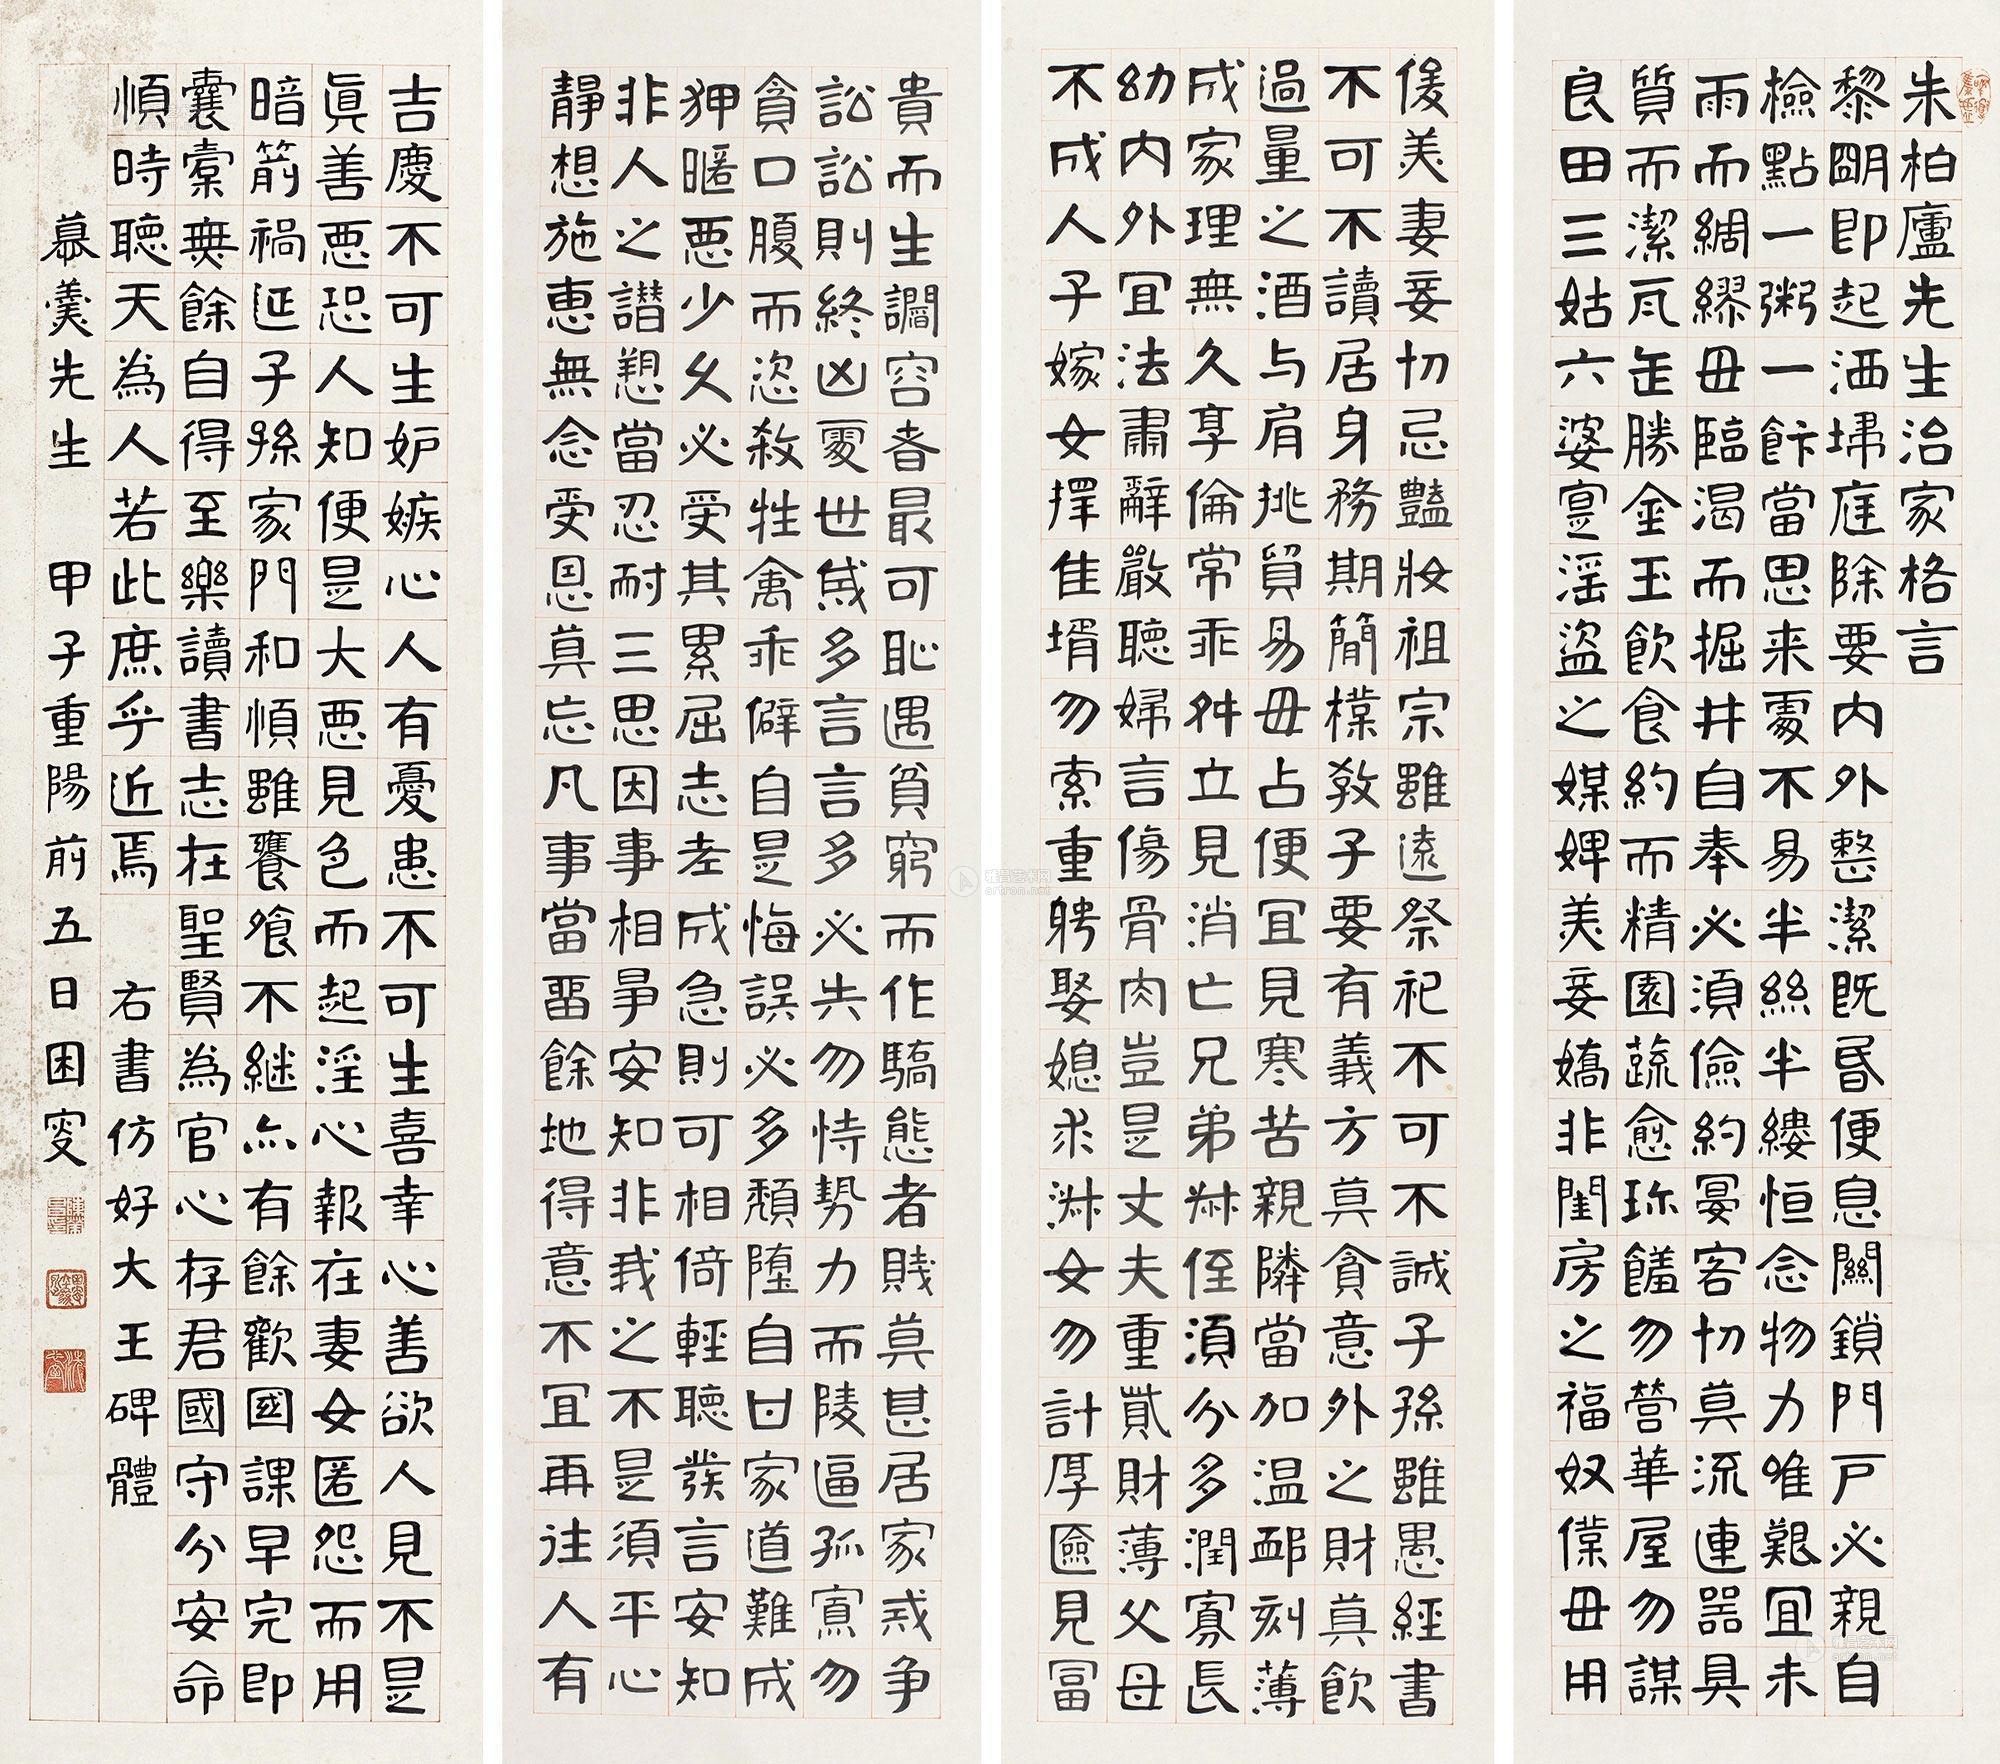 朱柏廬先生治家格言
黎朙即起洒埽庭除要内外整潔既昬便息關鎖門戶必親自
檢點一粥一飰當思来處不易半絲半縷恒念物力唯艱冝未
雨而綢繆毋臨渴而掘井自奉必須儉約宴客切莫流連器具
質而潔瓦缶勝金玉飲食約而精園蔬愈珎饈勿營華屋勿謀
良田三姑六婆寔淫盜之媒婢美妾嬌非閨房之福奴僕毋用
俊美妻妾切忌豔妝祖宗雖遠祭祀不可不誠子孫雖愚經書
不可不讀居身務期簡樸教子要有義方莫貪意外之財莫飲
過量之酒与肩挑貿易毋占便冝見寒苦親隣當加温卹刻薄
成家理無久享倫常乖舛立見消亡兄弟叔侄須分多潤寡長
幼内外冝法肅辭嚴聽婦言傷骨肉豈是丈夫重貲財薄父母
不成人子嫁女擇佳壻勿索重聘娶媳求淑女勿計厚匳見冨
貴而生讇容者最可恥遇貧窮而作驕態者賤莫甚居家戒爭
訟訟則終凶處世戒多言言多必失勿恃勢力而陵逼孤寡勿
貪口腹而恣殺牲禽乖僻自是悔誤必多頹墮自甘家道難成
狎暱惡少久必受其累屈志老成急則可相倚輕聽發言安知
非人之譖愬當忍耐三思因事相爭安知非我之不是須平心
靜想施惠無念受恩莫忘凡事當畱餘地得意不冝再往人有
吉慶不可生妒嫉心人有憂患不可生喜幸心善欲人見不是
眞善惡恐人知便是大惡見色而起淫心報在妻女匿怨而用
暗箭禍延子孫家門和順雖饔飧不継亦有餘歡國課早完即
囊橐無餘自得至樂讀書志在聖賢為官心存君國守分安命
順時聽天為人若此庶乎近焉　右書仿好大王碑體
慕羹先生　甲子重陽前五日困叟